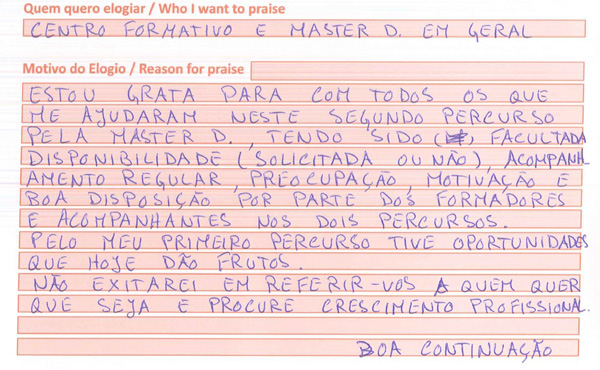 Quem quero elogiar / Who I want to praise
CENTRO FORMATIVO E MASTER D. EM GERAL
Motivo do Elogio / Reason for praise
ESTOU GRATA PARA COM TODOS OS QUE
ME AJUDARAM NESTE SEGUNDO PERCURSO
PELA MASTER D., TENDO SIDO ( ) FACULTADA
DISPONIBILIDADE (SOLICITADA OU NÃO), ACOMPANH
AMENTO REGULAR, PREOCUPAÇÃO, MOTIVAÇÃO E
BOA DISPOSIÇÃO POR PARTE DOS FORMADORES
E ACOMPANHANTES NOS DOIS PERCURSOS.
PELO MEU PRIMEIRO PERCURSO TIVE OPORTUNIDADES
QUE HOJE DÃO FRUTOS.
NÃO EXITAREI EM REFERIR-VOS A QUEM QUER
QUE SEJA E PROCURE CRESCIMENTO PROFISSIONAL.
BOA CONTINUAÇÃO